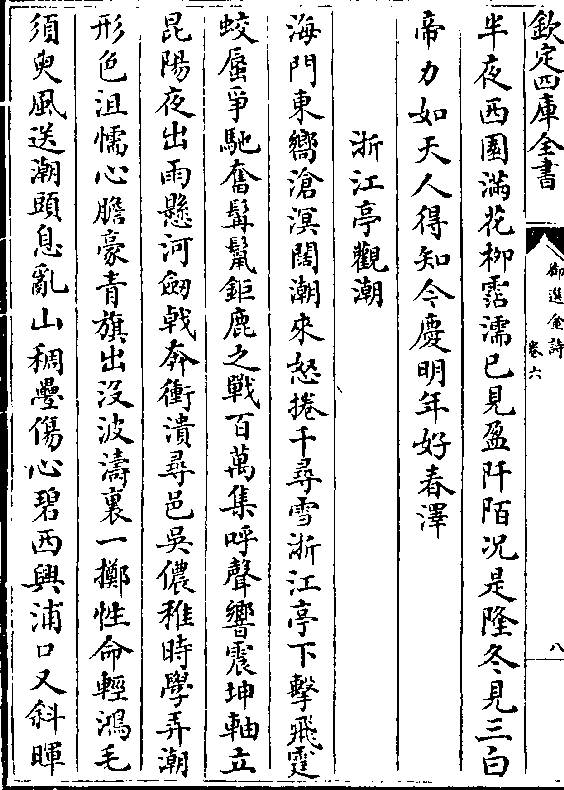 欽定四庫全書
御選金詩
卷六
八
半夜西園滿花柳霑濡已見盈阡陌况是隆冬見三白
帝力如天人得知今慶明年好春澤
浙江亭觀潮
海門東嚮滄溟闊潮來怒捲千尋雪浙江亭下擊飛霆
蛟蜃爭馳奮髯鬣鉅鹿之戰百萬集呼聲響震坤軸立
昆陽夜出雨懸河劒戟奔衝潰尋邑吳儂稚時學弄潮
形色沮懦心膽豪青旗出沒波濤裏一擲性命輕鴻毛
須臾風送潮頭息亂山稠疊傷心碧西興浦口又斜暉